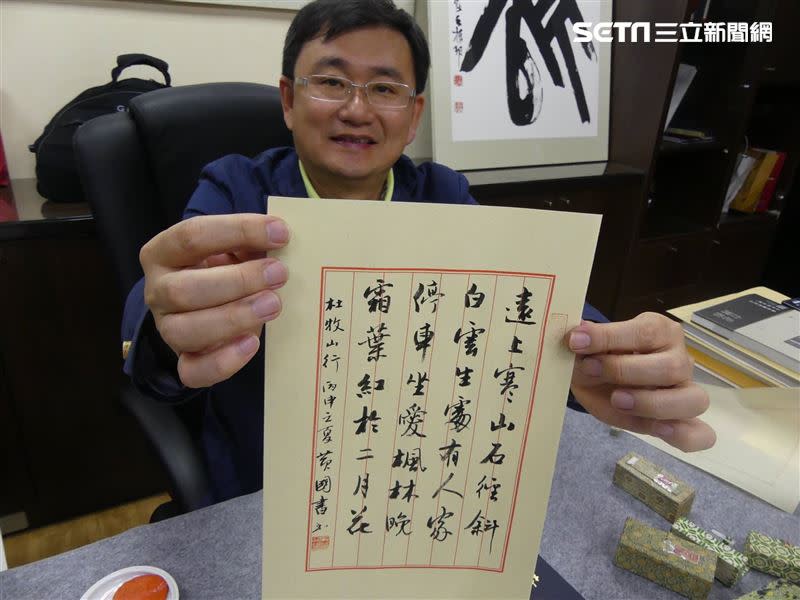 SETN三立新聞網
遠上寒山石徑斜
白雲生處有人家
停車坐愛楓林晚
霜葉紅於二月花
杜牧山行 丙申之夏 黃國書